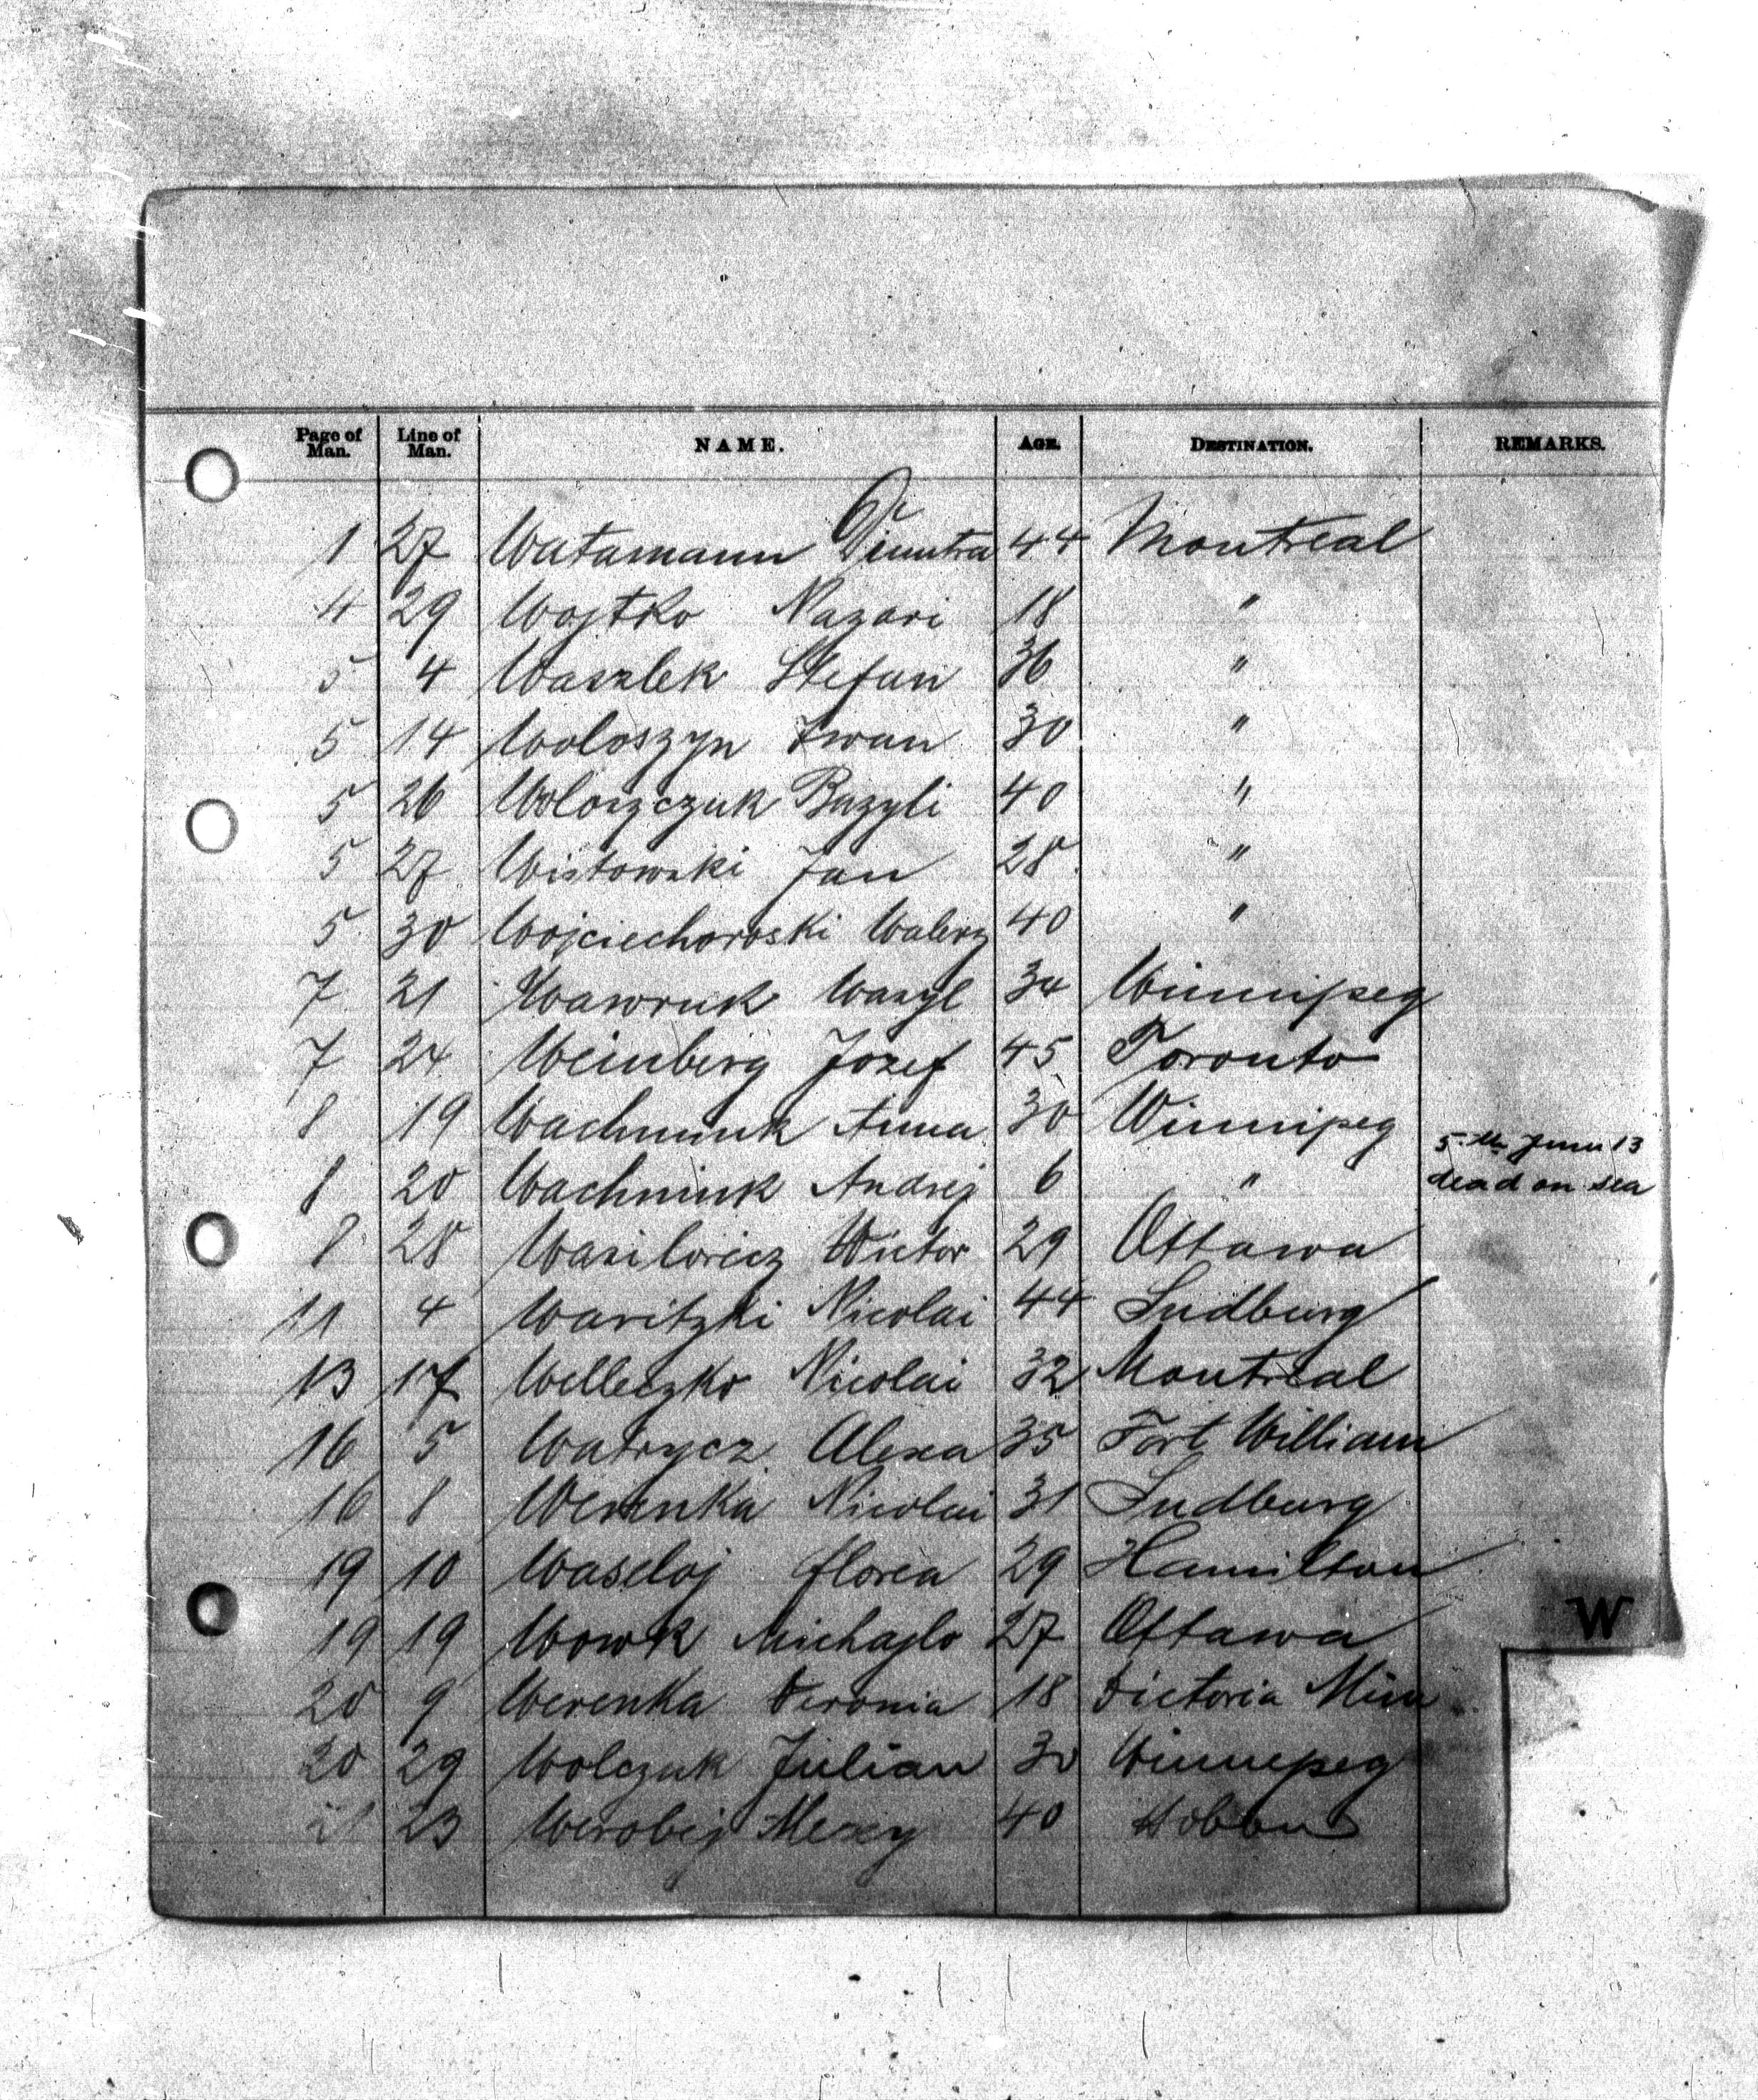 Page of Man. Line of Man. NAME. AGE. DESTINATION. REMARKS.
1 27 Watamann Dimitra 44 Montreal
4 29 Wojtko Nazari 18 "
5 4 Waszlek Stefan 36 "
5 14 Woloszyn Iwan 30 "
5 26 Woloszczuk Bazyli 40 "
5 27 Wistowski Jan 28 "
5 30 Wojciechowski Walery 40 "
7 21 Wawruk Wasyl 34 Winnipeg
7 24 Weinberg Jozef 45 Toronto
8 19 Wachniuk Anna 30 Winnipeg
8 20 Wachniuk Andrej 6 " 5.th June 13 dead on sea
8 28 Wasilowicz Wictor 29 Ottawa
11 4 Waritzki Nicolai 44 Sudburg
13 17 Welleczko Nicolai 32 Montreal
16 5 Watrycz Alexa 35 Fort William
16 8 Werenka Nicolai 31 Sudburg
19 10 Waseloj florea 29 Hamilton
19 19 Wowk Michajlo 27 Ottawa
W
20 9 Werenka Veronia 18 Victoria Min
20 29 Wolczuk Julian 30 Winnepeg
21 23 Werobej Alexy 40